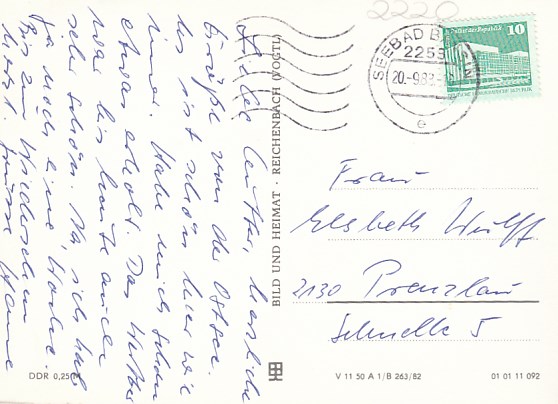 Liebe Mutter, herzliche
Grüße von der Ostsee.
Es ist schön hier wie
immer. Habe mich schon
etwas erholt. Das Wetter
war bis heute auch
sehr schön. Na, ich hab
ja noch eine Woche.
Bis zum Wiedersehen
herzl. Grüsse Hanne
BILD UND HEIMAT · REICHENBACH (VOGTL)
2220
SEEBAD BANSIN
2255
20.-9.83
e
10
Frau
Elsbeth Wulff
2130 Prenzlau
Schnelle 5
DDR 0,25 M
V 11 50 A 1/B 263/82
01 01 11 092